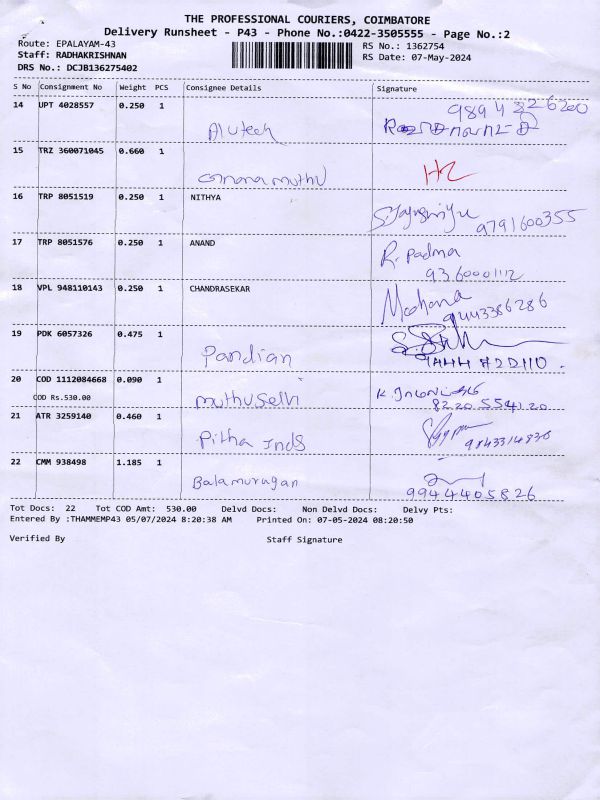 THE PROFESSIONAL COURIERS, COIMBATORE
Delivery Runsheet - P43 - Phone No.:0422-3505555 - Page No.:2
Route: EPALAYAM-43 RS No.: 1362754
Staff: RADHAKRISHNAN RS Date: 07-May-2024
DRS No.: DCJB136275402
S No Consignment No Weight PCS Consignee Details Signature
14 UPT 4028557 0.250 1
Alutech
15 TRZ 360071045 0.660 1
16 TRP 8051519 0.250 1 NITHYA
9791600355
17 TRP 8051576 0.250 1 ANAND R. Padma
9360001112
18 VPL 948110143 0.250 1 CHANDRASEKAR Mohana
9443386286
19 PDK 6057326 0.475 1
Pandian
20 COD 1112084668 0.090 1
COD Rs.530.00 muthuselvi 8220 554120
21 ATR 3259140 0.460 1
Pitha Inds 9843314830
22 CMM 938498 1.185 1
Balamurugan 9944405826
Tot Docs: 22 Tot COD Amt: 530.00 Delvd Docs: Non Delvd Docs: Delvy Pts:
Entered By :THAMMEMP43 05/07/2024 8:20:38 AM Printed On: 07-05-2024 08:20:50
Verified By Staff Signature